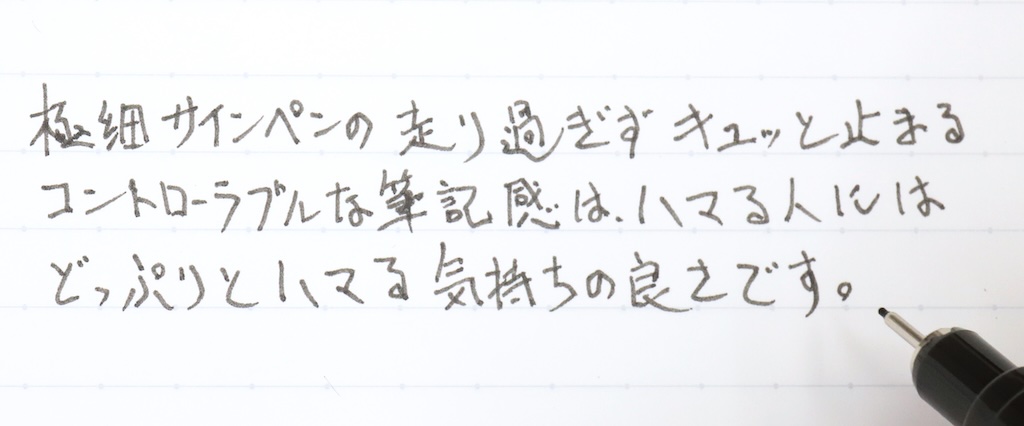 極細サインペンの走り過ぎずキュッと止まる
コントローラブルな筆記感は、ハマる人には
どっぷりとハマる気持ちの良さです。